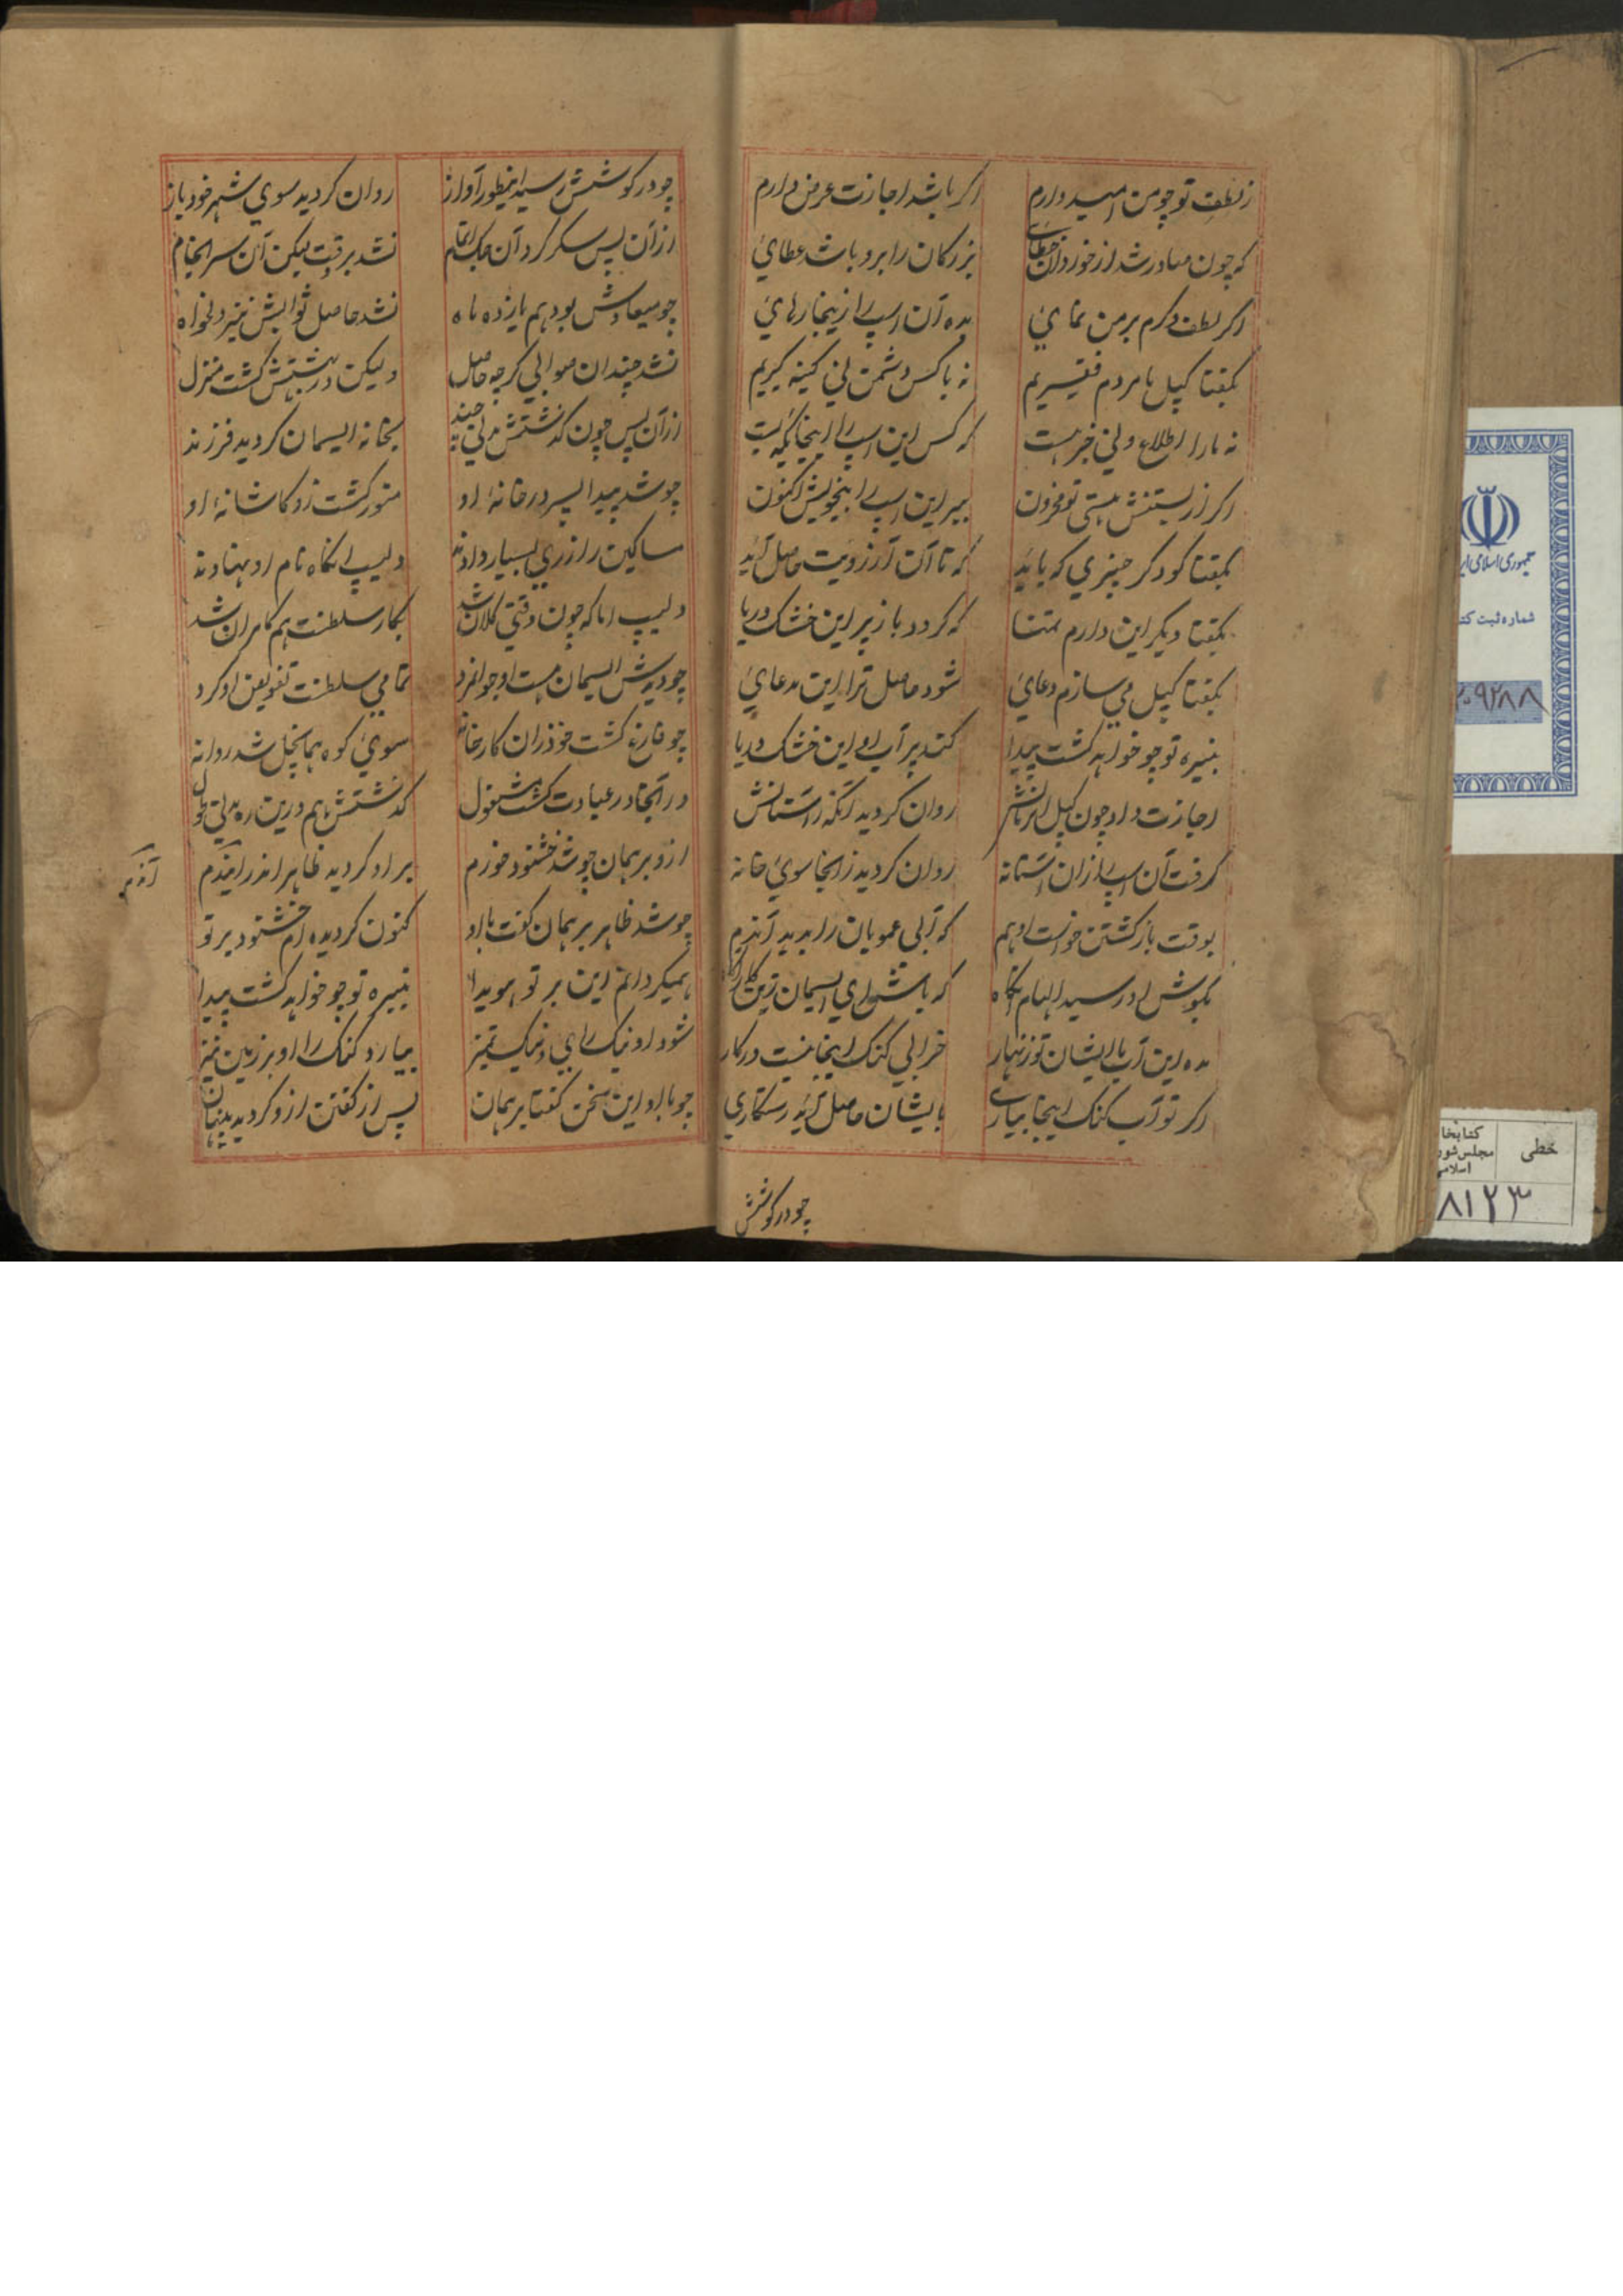 ز لطف تو چو من امیدوارم اکر باشد اجازت عرض دارم
که چون صادر شد از خوردان خطای بزرکان را برو باشد عطای
اکر لطف و کرم بر من نمایی بده آن اسپ را زینجا رهایی
بکفتا کپل ما مردم فقیریم نه با کس دشمن نی کینه کیریم
نه ما را اطلاع و نی خبر هست که کس این اسپ را اینجا
اکر از بستنش هستی تو محزون ببر این اسپ را بیخویش اکنون
بکفتا کو دکر چیزی که باید که تا آن آرزویت حاصل آید
بکفتا دیکر این دارم تمنا که کردد باز پر این خشک دریا
بکفتا کپل می سازم دعای شود حاصل ترا این مدعای
نبیره تو چو خواهد کشت پیدا کند پر آب او این خشک دریا
اجازت داد چون کپل روان کردید از آستانش
کرفت آن اسپ از آن آستانه روان کردید ز آنجا سوی خانه
بوقت باز کشتن خواست او هم که آبی عمویان را بدید آندم
بکوش او در رسید الهام آنکاه که باش ای ایسمان زین کار آکاه
مده این آب با ایشان تو زنهار خرابی کنک اینجا هست درکار
اکر تو آب کنک اینجا بیاری بایشان حاصل آید رستکاری
چو در کوشش
چو در کوشش رسید اینطور آواز روان کردید سوی شهر خود باز
از آن پس سکر کرد آن جک نشد بر وقت لیکن آن سرانجام
چو میعادش بود هم یازده ماه نشد حاصل ثوابش نیز دلخواه
نشد چندان صوابی کرچه حاصل ولیکن در بهشتش کشت منزل
از آن پس چون کذشتش مدتی چند بخانه ایسمان کردید فرزند
چو شد پیدا پسر در خانهٔ او منور کشت زو کاشانهٔ او
مساکین را زری بسیار دادند دلیپ آنکاه نام او نهادند
دلیپ اما که چون وقتی کلان شد بکار سلطنت هم کامران شد
چو دیدش ایسمان هست او جوانمرد تمامی سلطنت تفویض او کرد
چو فارغ کشت خود زان کارخانه سوی کوه هماچل شد روانه
در آنجا در عبادت کشت مشغول کذشتش هم درین ره مدتی طول
ازو برهمان چو شد خشنود و خرم بر او کردید ظاهر اندر آندم
آندم
چو شد ظاهر برهمان کفت با او کنون کردیده ام خشنود بر تو
همیکردانم این بر تو هویدا نبیره تو چو خواهد کشت پیدا
شود او نیک رای و نیک تمیز بیارد کنک را او بر زمین نیز
چو با او این سخن کفتا برهمان پس از کفتن ازو کردید پنهان
جمهوری اسلامی ایر
شماره ثبت کت
۲۰۹۲۸۸
خطی
کتابخا
مجلس شور
اسلامی
۸۱۲۳